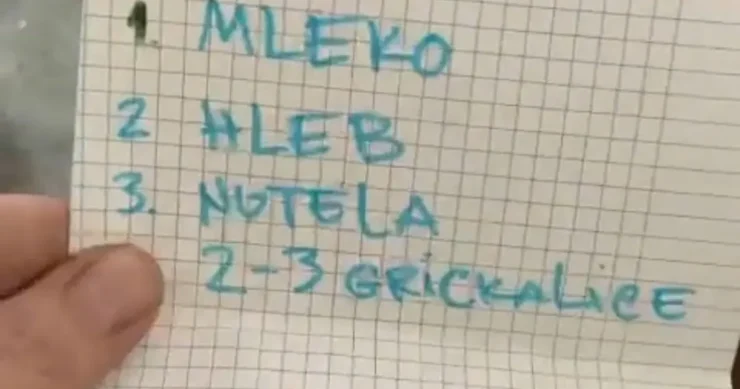 1. MLEKO
2 HLEB
3. NUTELA
2-3 GRICKALICE